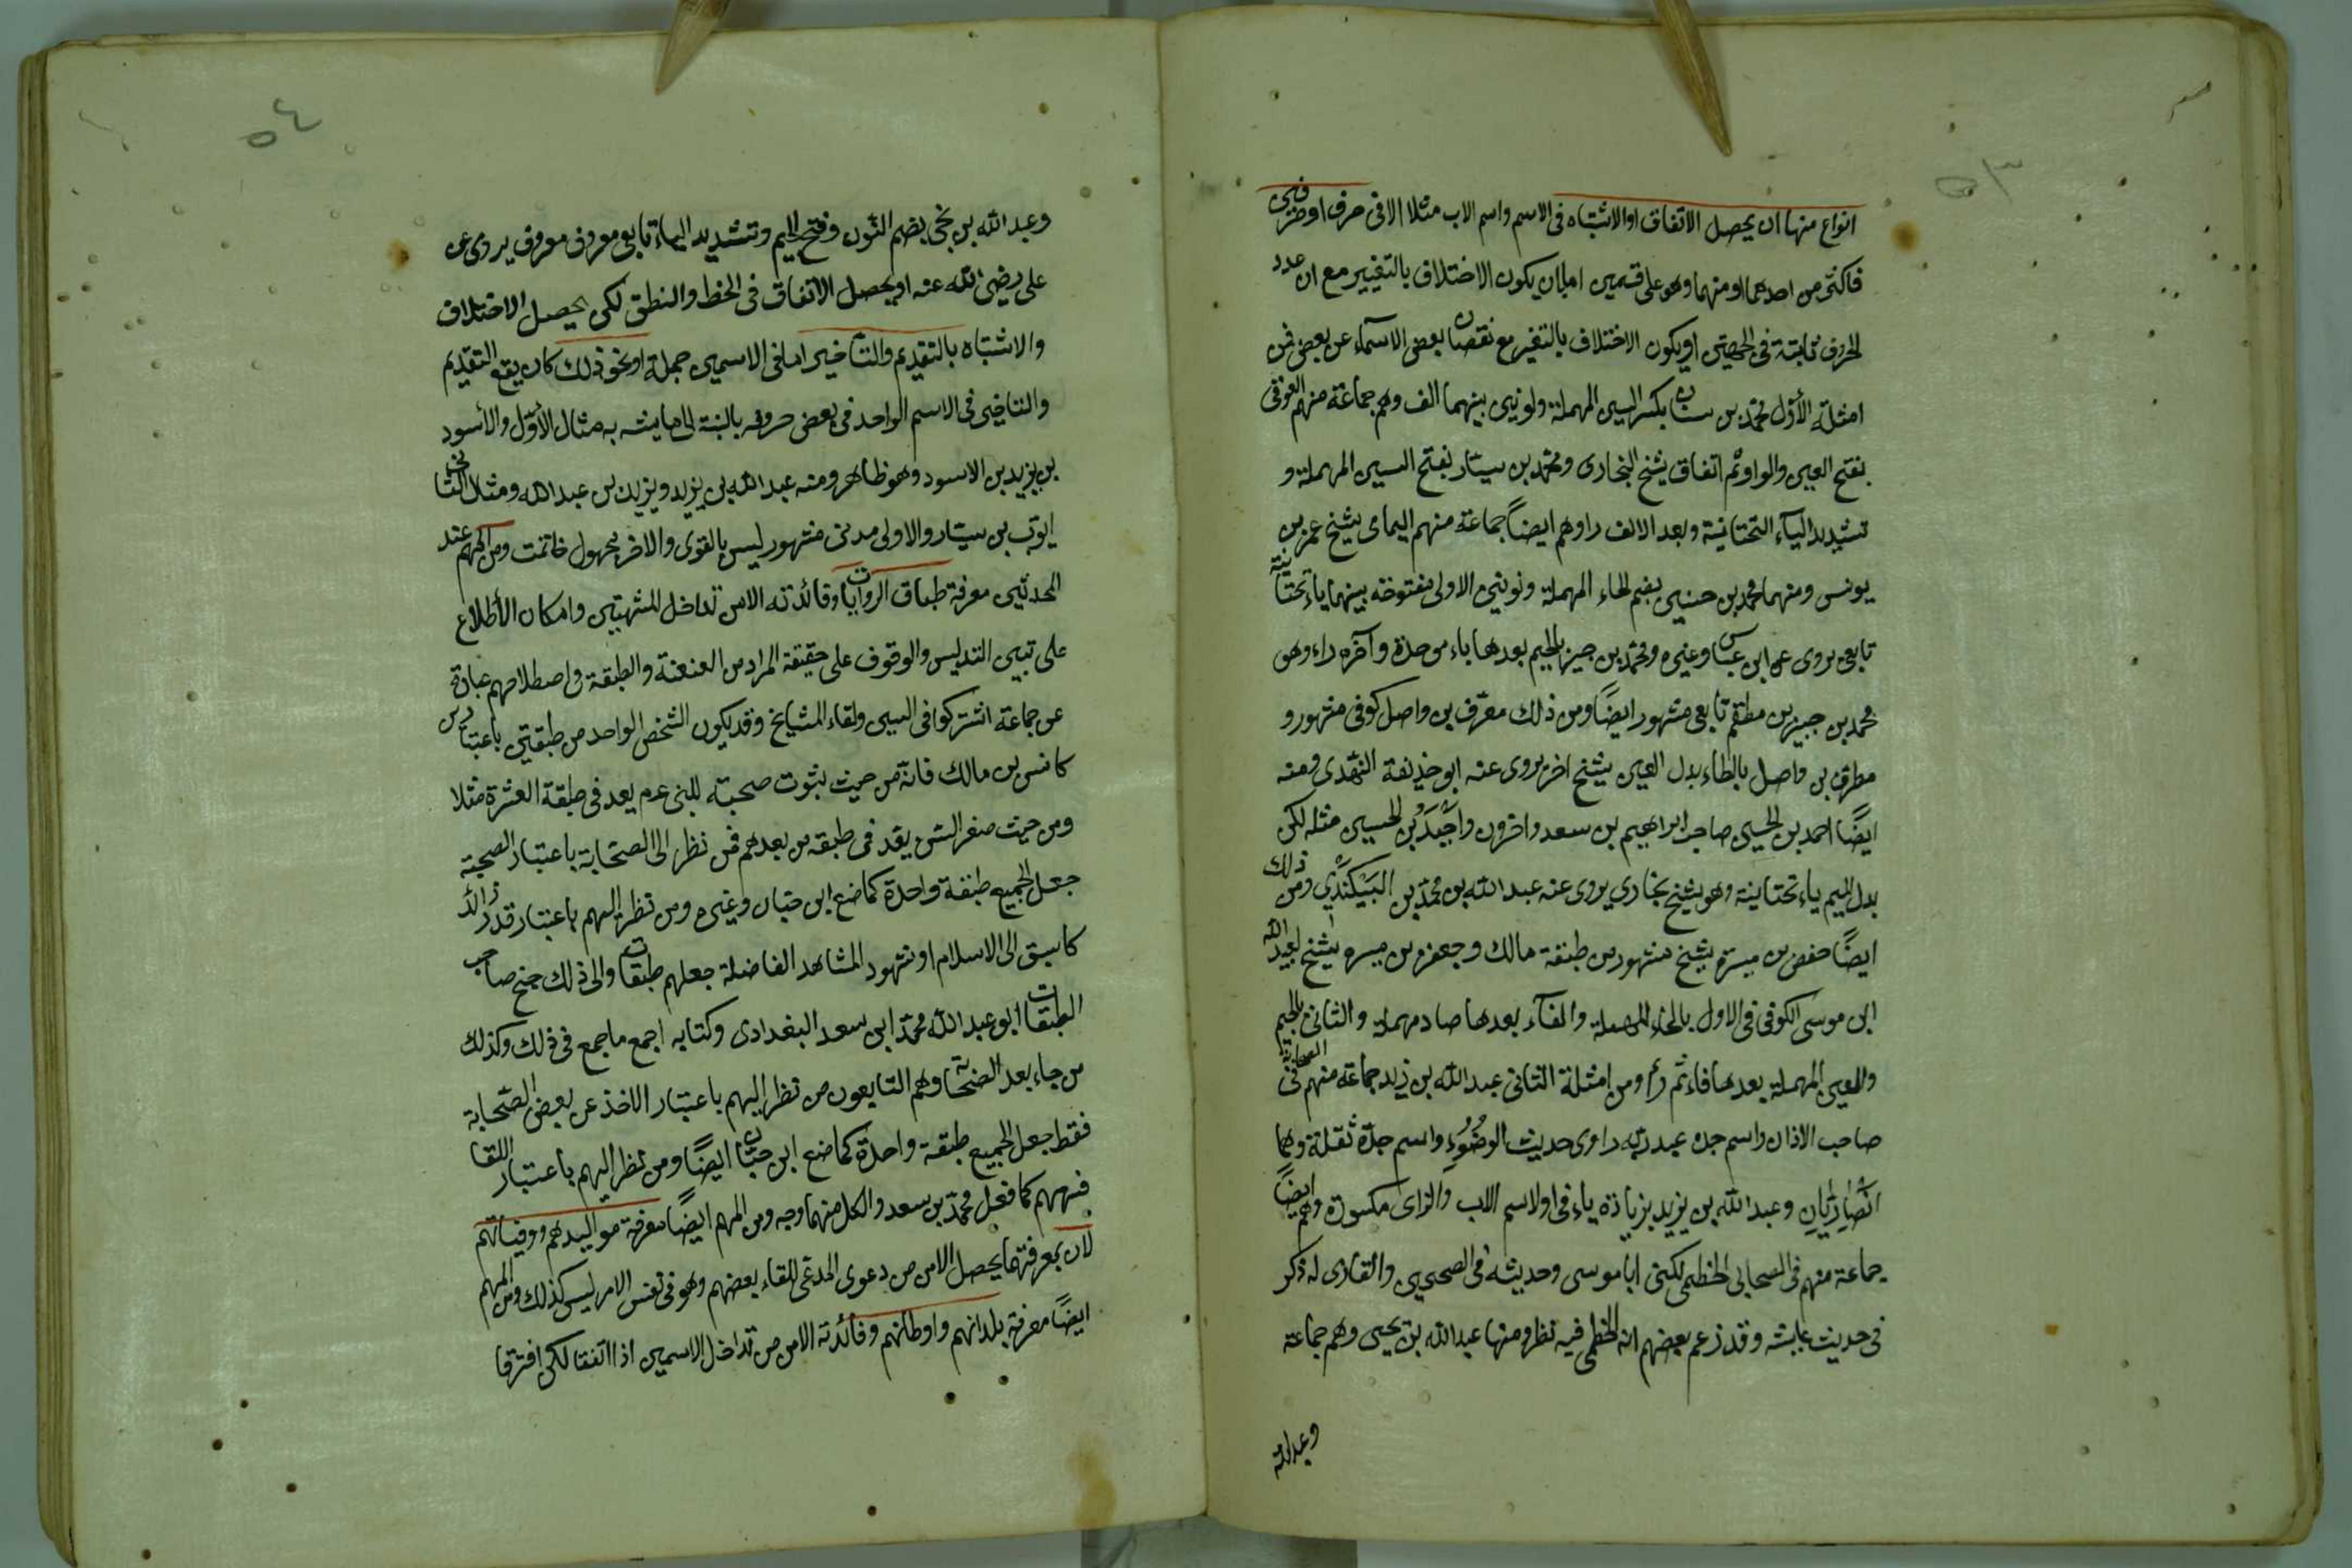 ٥٣
انواع منها ان يحصل الاتفاق او الاشتباه فى الاسم واسم الاب مثلا الا فى حرف او حرفين
فاكثر من احدهما او منهما وهو على قسمين اما ان يكون الاختلاف بالتغيير مع ان عدد
الحروف ثابتة فى الجهتين او يكون الاختلاف بالتغير مع نقصان بعض الاسمآء عن بعض فمن
امثلة الأول محمد بن سنان بكسر السين المهملة ونونين بينهما الف وهم جماعة منهم العوقى
بفتح العين والواو ثم القاف شيخ البخارى ومحمد بن سيار بفتح السين المهملة و
تشديد اليآء التحتانية وبعد الالف را وهم ايضاً جماعة منهم اليمامى شيخ عمر بن
يونس ومنهما محمد بن حنين بضم الحاء المهملة ونونين الاولى مفتوحة بينهما ياء تحتانية
تابعى يروى عن ابن عباس وغيره ومحمد بن جبير بالجيم بعدها باء موحدة وآخره راء وهو
محمد بن جبير بن مطعم تابعى مشهور ايضًا ومن ذلك معرّف بن واصل كوفى مشهور و
مطرف بن واصل بالطاء بدل العين شيخ اخر يروى عنه ابو حذيفة النهدى ومنه
ايضًا احمد بن الحسين صاحب ابراهيم بن سعد واخرون واجيد بن الحسين مثله لكن
بدل الميم ياء تحتانية وهو شيخ بخارى يروى عنه عبد الله بن محمد بن البيكندى ومن ذلك
ايضًا حفص بن ميسرة شيخ مشهور من طبقة مالك وجعفر بن ميسره شيخ لعبيد الله
ابن موسى الكوفى فى الاول بالحاء المهملة والفآء بعدها صاد مهملة والثانى بالجيم
والعين المهملة بعدها فاء ثم را ومن امثلة الثانى عبد الله بن زيد جماعة منهم فى الصحابة
صاحب الاذان واسم جده عبد ربه راوى حديث الوضوء واسم جده ثقلة وهما
انصاريان وعبد الله بن يزيد بزيادة ياء فى اول اسم الاب والزاى مكسورة وهم ايضًا
جماعة منهم فى الصحابى الخطمى لكنى ابا موسى وحديثه فى الصحيحين والقارى له ذكر
فى حديث عايشه وقد زعم بعضهم انه الخطمى فيه نظر ومنها عبد الله بن يحيى وهم جماعة
وعبد الله
٥٤
وعبد الله بن نجى بضم النون وفتح الجيم وتشديد الياء تابعى معروف معروف يروى عن
على رضى الله عنه او يحصل الاتفاق فى الخط والنطق لكن يحصل الاختلاف
والاشتباه بالتقديم والتاخير اما فى الاسمين جملة او نحو ذلك كان يقع التقديم
والتاخير فى الاسم الواحد فى بعض حروفه بالنسبة الى ما يشبه به مثال الأول والأسود
بن يزيد بن الاسود وهو ظاهر ومنه عبد الله بن يزيد ويزيد بن عبد الله ومثال الثانى
ايوب بن سيار والاولى مدنى مشهور ليس بالقوى والاخر مجهول خاتمة ومن المهم عند
المحدثين معرفة طبقات الرواة وفائدته الامن تداخل المشتبهين وامكان الأطلاع
على تبيين التدليس والوقوف على حقيقة المراد من العنعنة والطبقة فى اصطلاحهم عبارة
عن جماعة اشتركوا فى السن ولقاء المشايخ وقد يكون الشخص الواحد من طبقتين باعتبارين
كانس بن مالك فانه من حيث ثبوت صحبته للنبى عم يعد فى طبقة العشرة مثلا
ومن حيث صغر السن يعد فى طبقه من بعدهم فمن نظر الى الصحابة باعتبار الصحبة
جعل الجميع طبقة واحدة كما صنع ابن حبان وغيره ومن نظر اليهم باعتبار قدر زائد
كاسبق الى الاسلام او شهود المشاهد الفاضلة جعلهم طبقات والى ذلك جنح صاحب
الطبقات ابو عبد الله محمد ابن سعد البغدادى وكتابه اجمع ما جمع فى ذلك وكذلك
من جاء بعد الصحابة وهم التابعون من نظر اليهم باعتبار الاخذ عن بعض الصحابة
فقط جعل الجميع طبقة واحدة كما صنع ابن حبان ايضًا ومن نظر اليهم باعتبار اللقا
فسهم كما فعل محمد بن سعد والكل منهما وجه ومن المهم ايضًا معرفة مواليدهم ووفياتهم
لان بمعرفتهما يحصل الامن من دعوى المدعى للقاء بعضهم وهو فى نفس الامر ليس كذلك ومن المهم
ايضًا معرفة بلدانهم واوطانهم وفائدته الامن من تداخل الاسمين اذا اتفقا لكن افترقا